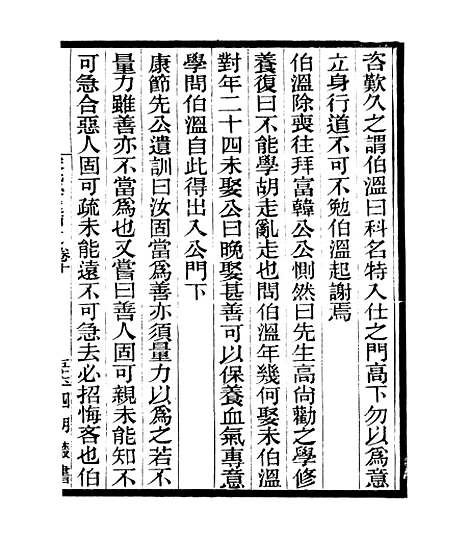 咨歎久之謂伯溫曰科名特入仕之門高下勿以為意
立身行道不可不勉伯溫起謝焉
伯溫除喪往拜富韓公公惻然曰先生高尚勸之學修
養復曰不能學胡走亂走也問伯溫年幾何娶未伯溫
對年二十四未娶公曰晚娶甚善可以保養血氣專意
學問伯溫自此得出入公門下
康節先公遺訓曰汝固當為善亦須量力以為之若不
量力雖善亦不當為也又嘗曰善人固可親未能知不
可急合惡人固可疏未能遠不可急去必招悔吝也伯
卷十
四明叢書